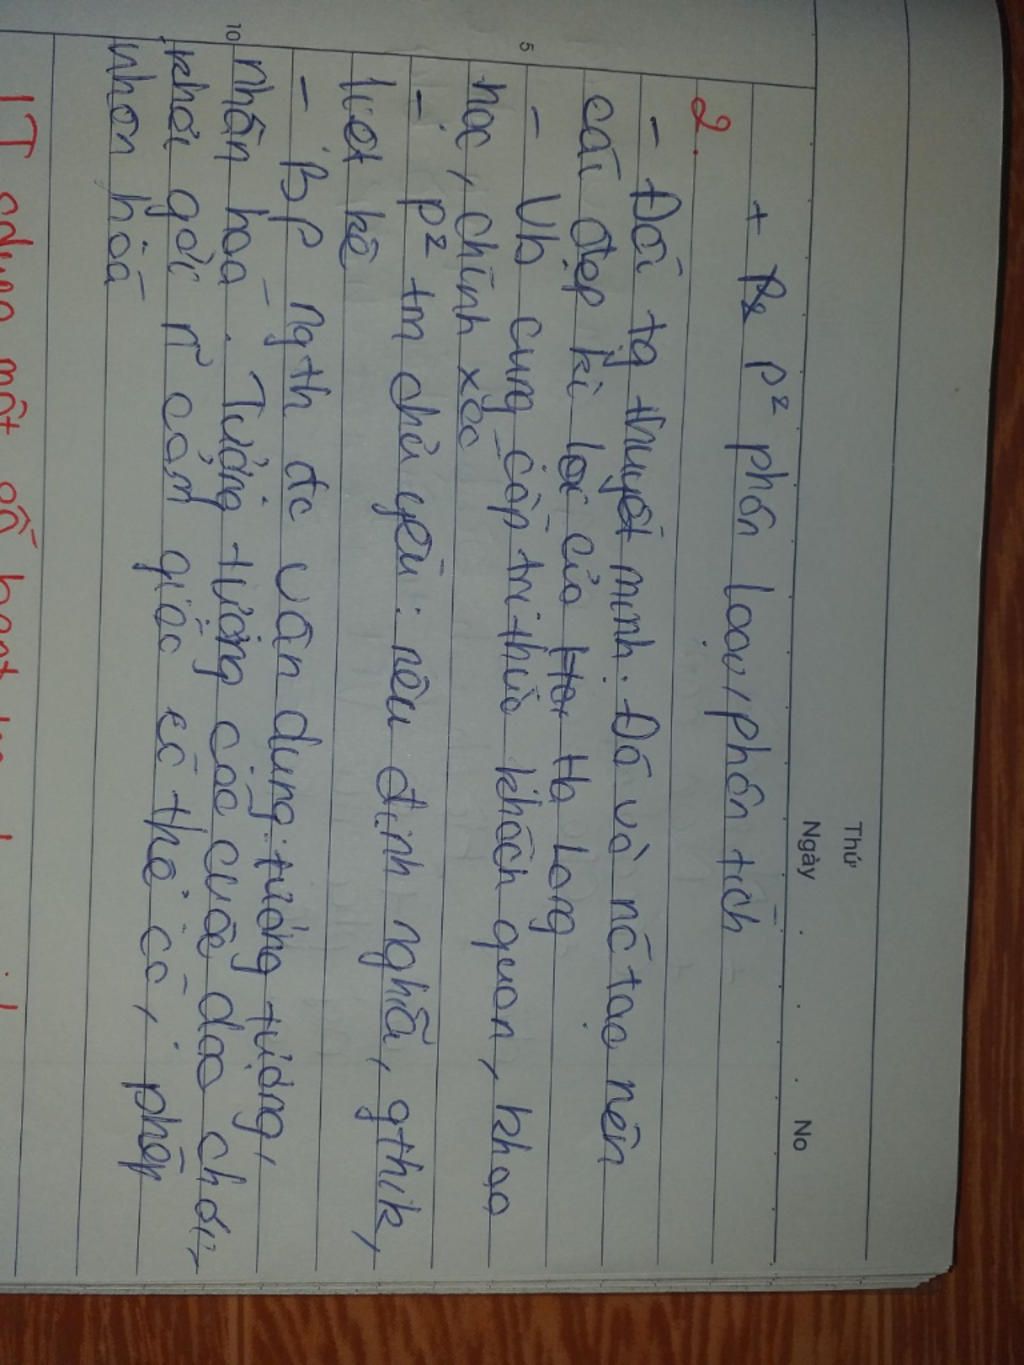 Thứ
Ngày No
+ p² phân loại, phân tích
2.
- Đối tg thuyết minh: Đá và nc tạo nên
cái đẹp kì lạ của Hạ Long
- Vb cung cấp tri thức khách quan, khoa
học, chính xác
- p² tm chủ yếu: nêu định nghĩa, gthik,
liệt kê
- BP ngth đc vân dụng: tưởng tượng,
nhân hoá. Tưởng tượng các cuộc dạo chơi,
khơi gợi n~ cảm giác có thể có, phép
nhân hoá
5
10